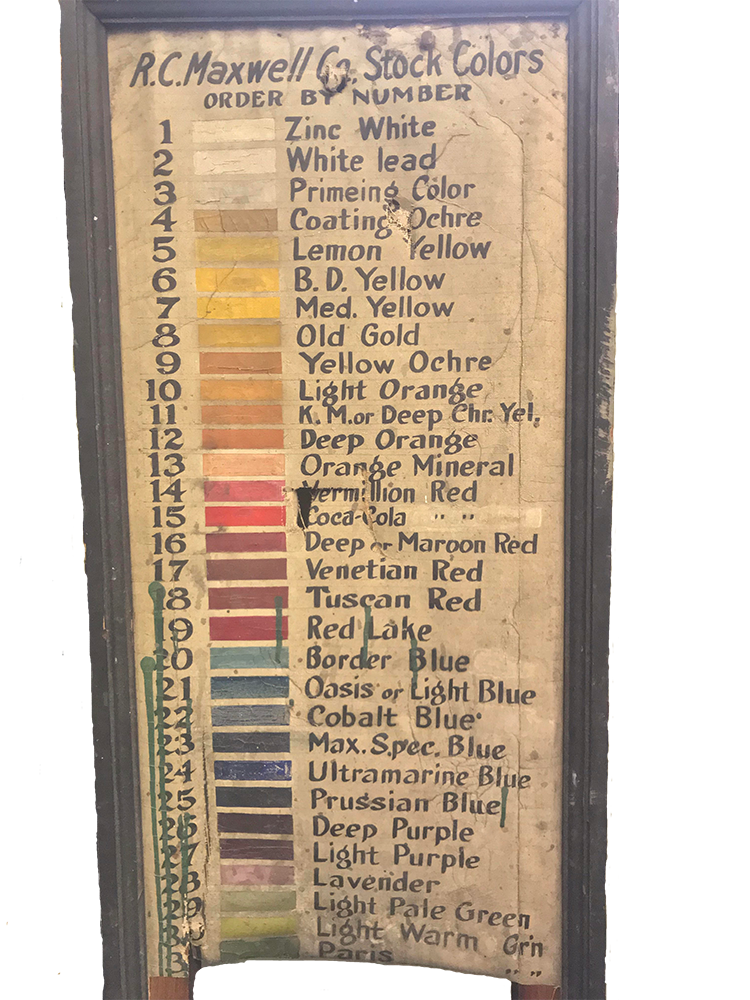 R.C. Maxwell Co. Stock Colors
ORDER BY NUMBER
1 Zinc White
2 White lead
3 Primeing Color
4 Coating Ochre
5 Lemon Yellow
6 B. D. Yellow
7 Med. Yellow
8 Old Gold
9 Yellow Ochre
10 Light Orange
11 K. M. or Deep Chr. Yel.
12 Deep Orange
13 Orange Mineral
14 Vermillion Red
15 Coca-Cola " "
16 Deep or Maroon Red
17 Venetian Red
18 Tuscan Red
19 Red Lake
20 Border Blue
21 Oasis or Light Blue
22 Cobalt Blue
23 Max. Spec. Blue
24 Ultramarine Blue
25 Prussian Blue
26 Deep Purple
27 Light Purple
28 Lavender
29 Light Pale Green
Light Warm Gr'n
Paris " "